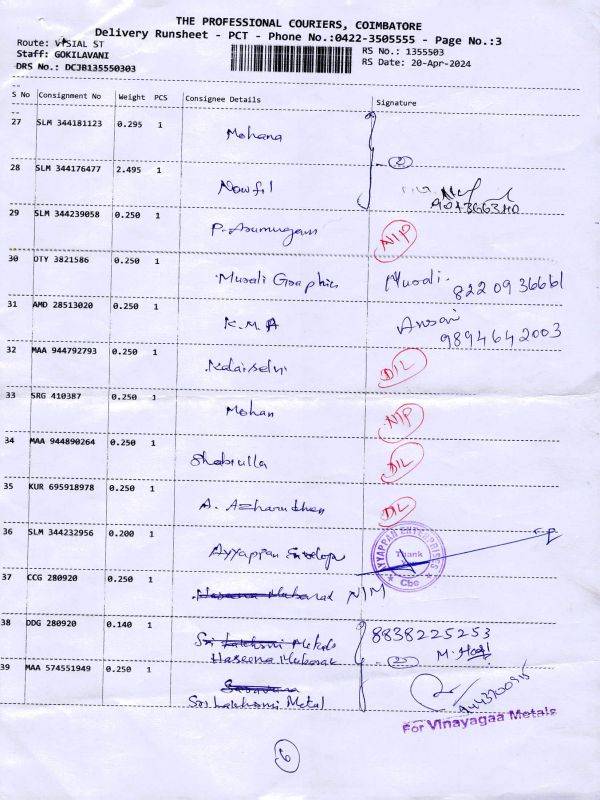 THE PROFESSIONAL COURIERS, COIMBATORE
Delivery Runsheet - PCT - Phone No.:0422-3505555 - Page No.:3
Route: VYSIAL ST
Staff: GOKILAVANI
DRS No.: DCJB135550303
RS No.: 1355503
RS Date: 20-Apr-2024
S No Consignment No Weight PCS Consignee Details Signature
27 SLM 344181123 0.295 1 Mohana
28 SLM 344176477 2.495 1 Nowfil
2
29 SLM 344239058 0.250 1 P. Arumugam N/P
30 OTY 3821586 0.250 1 Murali Graphics Murali.
8220936661
31 AMD 28513020 0.250 1 K.M.A Ansari
9894642003
32 MAA 944792793 0.250 1 Kalaiselvi D/L
33 SRG 410387 0.250 1 Mohan N/P
34 MAA 944890264 0.250 1 Shabiulla D/L
35 KUR 695918978 0.250 1 A. Azharudhen D/L
36 SLM 344232956 0.200 1 Ayyappan
AYYAPPAN ENTERPRISES
Thank
Cbe
37 CCG 280920 0.250 1 Haseena Mubarak N/M
38 DDG 280920 0.140 1 Sri Lakshmi Metals 8838225253
Haseena Mubarak
2
39 MAA 574551949 0.250 1 Saravana
Sri Lakshmi Metal
For Vinayagaa Metals
6